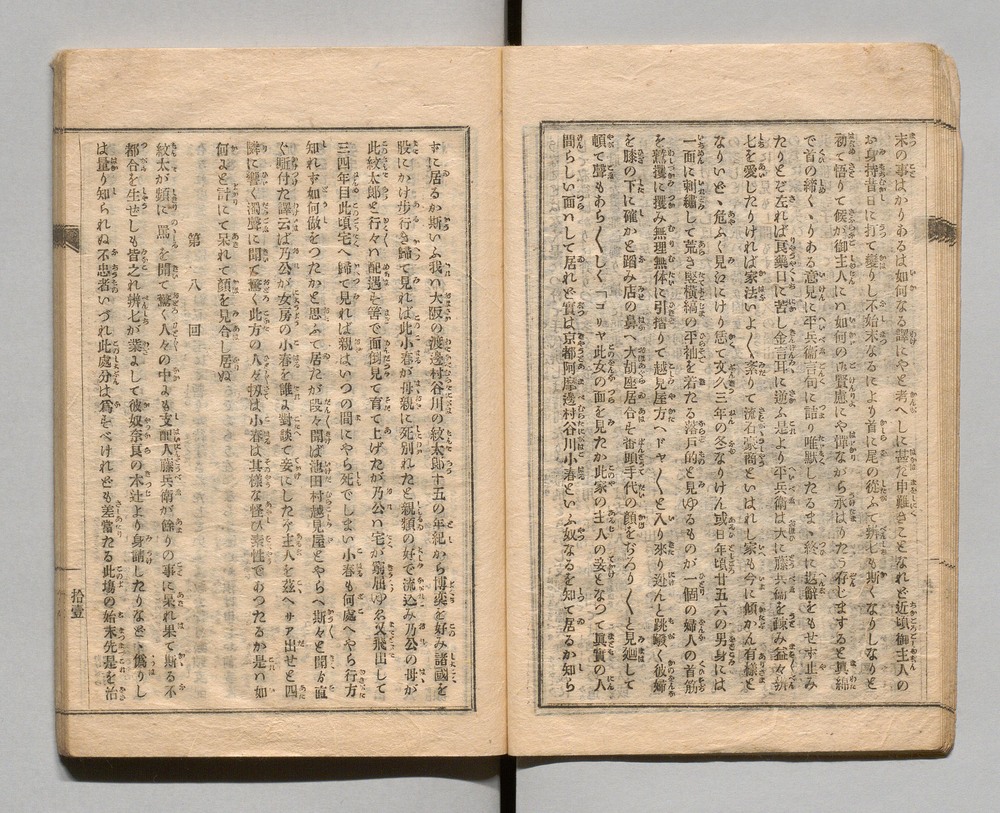 末の事はかりあるは如何なる譯にやと考へしに甚た申難きことなれど近頃御主人の
お身持昔日に打て變りし不始末なるにより首に尾の從ふて辨七も斯くなりしなりと
初て悟りて候が御主人にハ如何の御賢慮にや憚ながら承はりたう存じまするど眞綿
で首の縛くゝりある意見に平兵衛言句に詰り唯默したるまゝ終に返辭をもせず止み
たりとぞ左れば良藥口に苦し金言耳に逆ふ是より平兵衛は大に藤兵衛を疎み益々辨
七を愛したりければ家法いよ〱紊りて流石豪商といはれし家も今に傾かん有樣と
なりいと〻危ふく見ゑにけり恁て文久三年の冬なりけん或日年頃廿五六の男身には
一面に刺繡して荒き竪橫縞の平袖を着たる落戸的と見ゆるものが一個の婦人の首筋
を鷲攫に攫み無理無体に引摺りて越見屋方へドヤ〱と入り來り迯んと跳踠く彼婦
を膝の下に確かと踏み店の鼻へ大胡座居合せ番頭手代の顔をぢろり〱と見廻して
頓て聲もあら〱しく「コリヤ此女の面を見たか此家の主人の妾となつて眞實の人
間らしい面いして居れど實は京都阿摩邊村谷川小春といふ奴なるを知て居るか知ら
ずに居るか斯いふ我ハ大阪の渡邊村谷川の紋太郎十五の年紀から博奕を好み諸國を
股にかけ步行き歸て見れば此小春が母親に死別れたと親類の好で流込み乃公の母が
此紋太郎と行々ハ配遇せ筈で面倒見て育て上げたが乃公ハ宅が窮屈ゆゑ又飛出して
三四年目此頃宅へ歸て見れば親はいつの間にやら死でしまい小春も何處へやら行方
知れず如何做をつたかと思ふて居たが段々聞ば池田村越見屋とやらへ斯々と聞き直
ぐ斬付た譯云ば乃公が女房の小春を誰よ對談て妾にしたぞ主人を玆へサア出せと四
隣に響く濁聲に聞て驚く此方の人々扨は小春は其樣な怪ひ素性であつたるか是ハ如
何よと計にて呆れて顔を見合し居ぬ
第八回
紋太が頻に罵を聞て驚く人々の中よも支配人藤兵衛が餘りの事に呆れ果て斯る不
都合を生せしも皆之れ辨七が業よして彼奴奈良の木辻より身請したりなど〻僞りし
は量り知られぬ不忠者いづれ此處分は爲をべけれども差當たる此塲の始末先是を治
拾壹